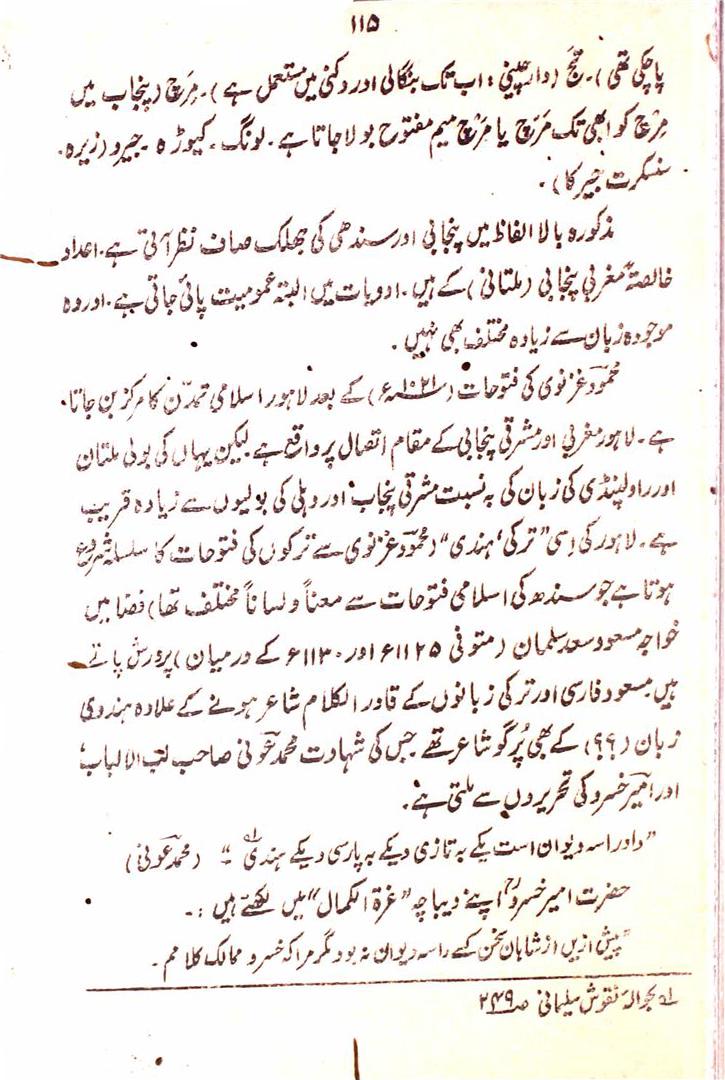 ۱۱۵
پاچکی تھی)۔ تج (دار چینی : اب تک بنگالی اور دکنی میں مستعمل ہے)۔ مرَچ (پنجاب میں
مرْچ کو ابھی تک مَرَچ یا مَرْچ میم مفتوح بولا جاتا ہے۔ لونگ۔ کیوڑہ۔ جیرو (زیرہ۔
سنسکرت جیرکا)۔
مذکورہ بالا الفاظ میں پنجابی اور سندھی کی جھلک صاف نظر آتی ہے۔ اعداد
خالصتہً مغربی پنجابی (ملتانی) کے ہیں۔ ادویات میں البتہ عمومیت پائی جاتی ہے۔ اور وہ
موجودہ زبان سے زیادہ مختلف بھی نہیں۔
محمود غزنوی کی فتوحات (۱۰۲۱ء) کے بعد لاہور اسلامی تمدّن کا مرکز بن جاتا
ہے۔ لاہور مغربی اور مشرقی پنجابی کے مقام اتصال پر واقع ہے لیکن یہاں کی بولی ملتان
اور راولپنڈی کی زبان کی بہ نسبت مشرقی پنجاب اور دہلی کی بولیوں سے زیادہ قریب
ہے۔ لاہور کی اِسی "ترکی، ہندی" (محمود غزنوی سے ترکوں کی فتوحات کا سلسلہ شروع
ہوتا ہے جو سندھ کی اسلامی فتوحات سے معناً و لساناً مختلف تھا) فضا میں
خواجہ مسعود سعد سلمان (متوفی ۱۱۲۵ء اور ۱۱۳۰ء کے درمیان) پرورش پاتے
ہیں مسعود فارسی اور ترکی زبانوں کے قادر الکلام شاعر ہونے کے علاوہ ہندوی
زبان (؟؟) کے بھی پُرگو شاعر تھے جس کی شہادت محمد عوفی صاحب لب الالباب،
اور امیر خسرو کی تحریروں سے ملتی ہے۔
"واورا سہ دیوان است یکے بہ تازی و یکے بہ پارسی و یکے ہندی ؂۱ ۔" (محمد عوفی)
حضرت امیر خسروؒ اپنے دیباچہ "غرۃ الکمال" میں لکھتے ہیں :۔
"پیش ازیں از شاہان سخن کسے را سہ دیوان نہ بود مگر مرا کہ خسرو ممالک کلامم۔
؂۱ بحوالہ نقوش سلیمانی صـ ۲۴۹